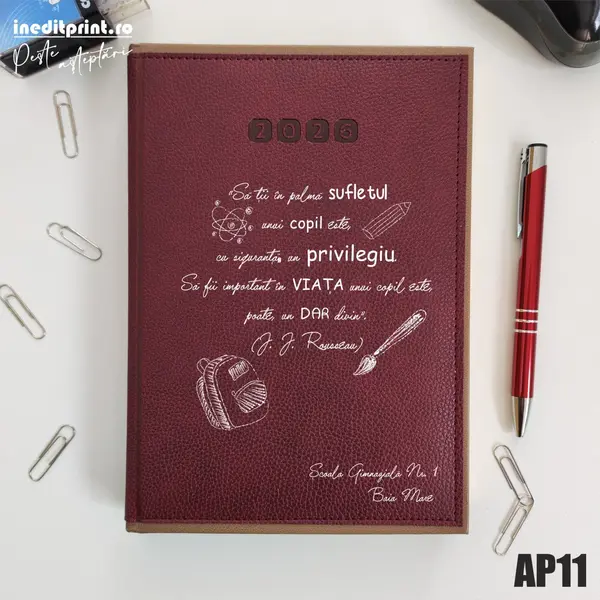 ineditprint.ro
Peste așteptări
2026
"Să ții în palmă sufletul
unui copil este,
cu siguranță, un privilegiu.
Să fii important în VIAȚA unui copil este,
poate, un DAR divin".
(J. J. Rousseau)
Școala Gimnazială Nr. 1
Baia Mare
AP11